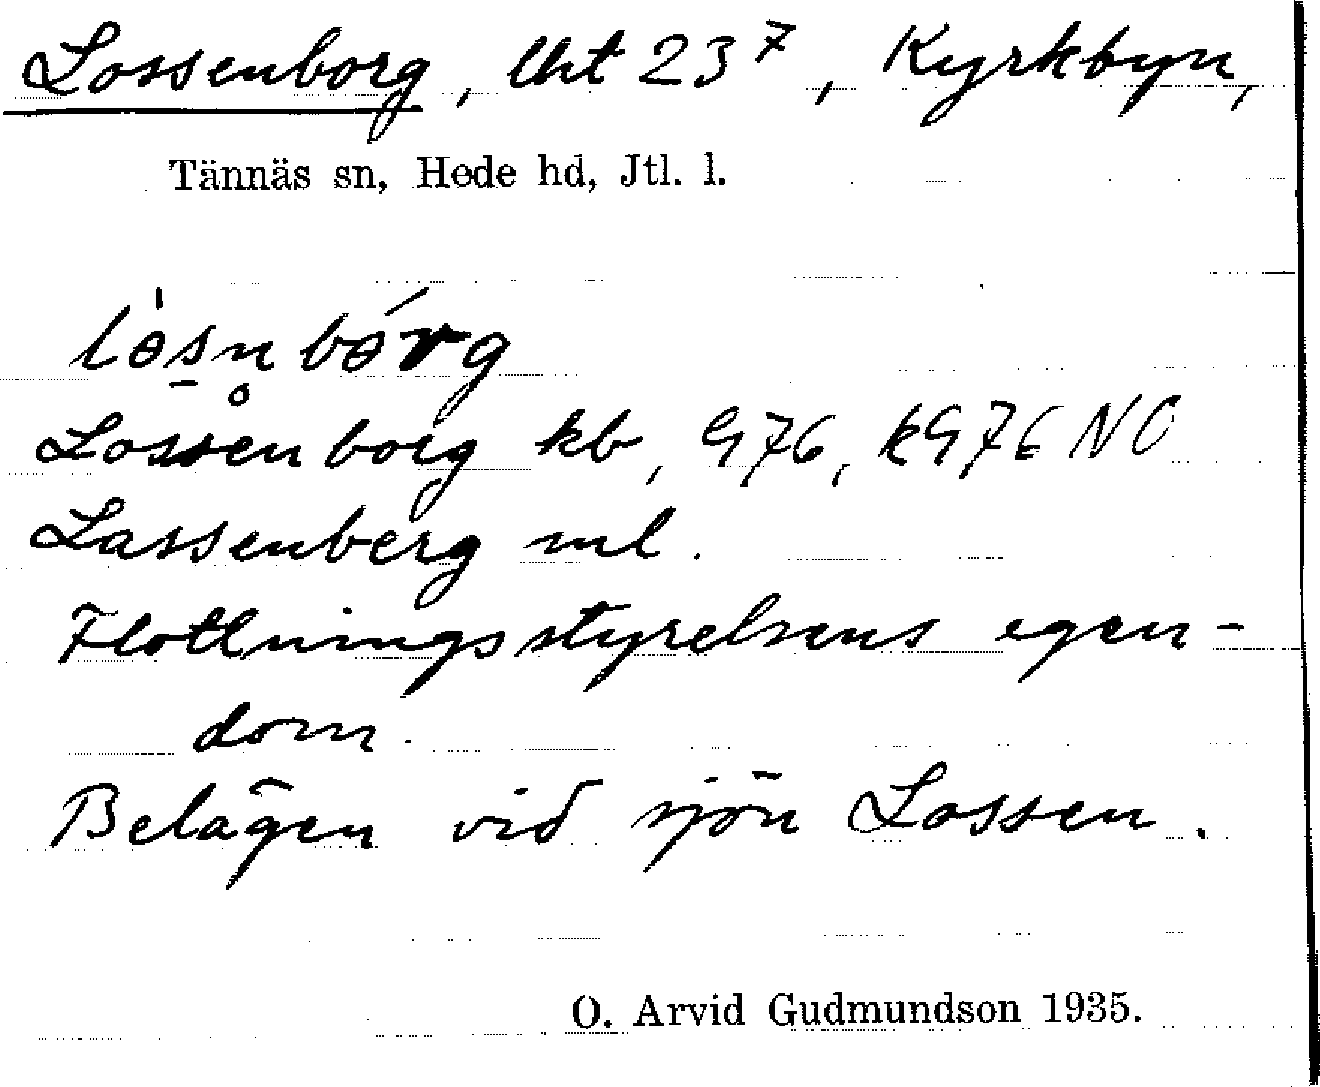 Lossenborg, lht 23⁷, Kyrkbyn,
Tännäs sn, Hede hd, Jtl. l.
lɵ̀s̠n̥bɵ́rg
Lossenborg kb, G76, kG76 NO
Lassenberg ml.
Flottningsstyrelsens egen-
dom.
Belägen vid sjön Lossen.
O. Arvid Gudmundson 1935.